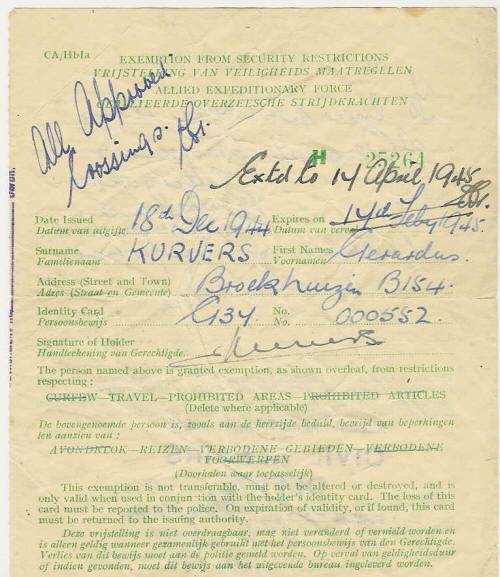 CA/Hbla
EXEMPTION FROM SECURITY RESTRICTIONS
VRIJSTELLING VAN VEILIGHEIDS MAATREGELEN
ALLIED EXPEDITIONARY FORCE
GEALLIEERDE OVERZEESCHE STRIJDKRACHTEN
All Approved
Crossings.
H 25264
Extd to 14 April 1945
Date Issued 18th Dec 1944 Expires on 14th Feby 1945.
Datum van uitgifte Datum van verval
Surname KURVERS First Names Gerardus.
Familienaam Voornamen
Address (Street and Town) Broekhuizen B154.
Adres (Straat en Gemeente)
Identity Card G34 No. 000552.
Persoonsbewijs No.
Signature of Holder
Handteekening van Gerechtigde.
The person named above is granted exemption, as shown overleaf, from restrictions
respecting :
CURFEW—TRAVEL—PROHIBITED AREAS—PROHIBITED ARTICLES
(Delete where applicable)
De bovengenoemde persoon is, zooals aan de keerzijde beduid, bevrijd van beperkingen
ten aanzien van :
AVONDKLOK—REIZEN—VERBODENE GEBIEDEN—VERBODENE
VOORWERPEN
(Doorhalen waar toepasselijk)
This exemption is not transferable, must not be altered or destroyed, and is
only valid when used in conjunction with the holder's identity card. The loss of this
card must be reported to the police. On expiration of validity, or if found, this card
must be returned to the issuing authority.
Deze vrijstelling is niet overdraagbaar, mag niet veranderd of vernield worden en
is alleen geldig wanneer gezamenlijk gebruikt met het persoonsbewijs van den Gerechtigde.
Verlies van dit bewijs moet aan de politie gemeld worden. Op verval van geldigheidsduur
of indien gevonden, moet dit bewijs aan het uitgevende bureau ingeleverd worden.